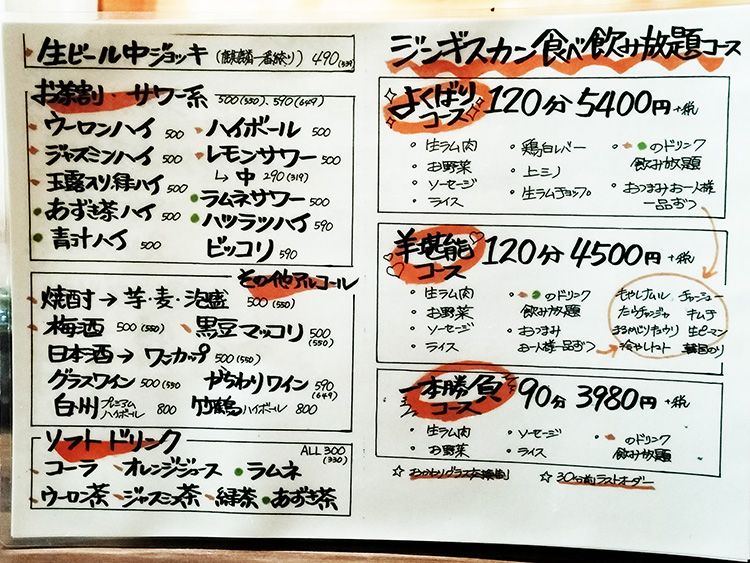 生ビール中ジョッキ (麒麟一番搾り) 490(539)
お茶割・サワー系 500(550)、590(649)
ウーロンハイ 500
ジャスミンハイ 500
玉露入り緑ハイ 500
あずき茶ハイ 500
青汁ハイ 500
ハイボール 500
レモンサワー 500
↳ 中 290(319)
ラムネサワー 500
ハツラツハイ 590
ビッコリ 590
その他アルコール
焼酎→芋・麦・泡盛 500(550)
梅酒 500(550) 黒豆マッコリ 500(550)
日本酒→ワンカップ 500(550)
グラスワイン 500(550 がらわりワイン 590(649)
白州プレミアムハイボール 800 竹鶴ハイボール 800
ソフトドリンク ALL300(330)
コーラ オレンジジュース ラムネ
ウーロン茶 ジャスミン茶 緑茶 あずき茶
ジンギスカン食べ飲み放題コース
よくばりコース 120分 5400円+税
・生ラム肉
・お野菜
・ソーセージ
・ライス
・鶏白レバー
・上ミノ
・生ラムチョップ
・のドリンク
飲み放題
・おつまみお一人様
一品ずつ
羊堪能コース 120分 4500円+税
・生ラム肉
・お野菜
・ソーセージ
・ライス
・のドリンク
飲み放題
・おつまみ
お一人様一品ずつ→
もやしナムル チャンジュー
たらチャンジャ キムチ
まるかじりキュウリ 生ピーマン
冷やしトマト 韓国のり
一本勝負コース 90分 3980円+税
・生ラム肉
・お野菜
・ソーセージ
・ライス
・のドリンク
飲み放題
☆おかわりグラス交換制 ☆30分前ラストオーダー